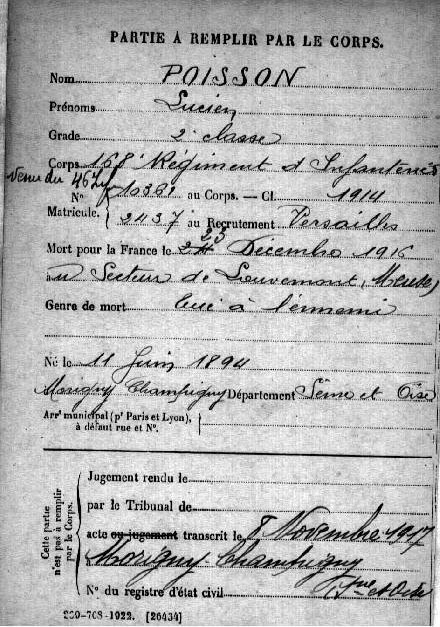 PARTIE À REMPLIR PAR LE CORPS.
Nom POISSON
Prénoms Lucien
Grade 2e classe
Corps 168e Régiment d'Infanterie
venu du 46e
N° 10361 au Corps. — Cl. 1914
Matricule. 2437 au Recrutement Versailles
Mort pour la France le 25 Décembre 1916
au Secteur de Louvemont, (Meuse)
Genre de mort tué à l'ennemi
Né le 11 Juin 1894
Morigny Champigny Département Seine et Oise
Arr' municipal (p' Paris et Lyon),
à défaut rue et N°.
Cette partie
n'est pas à remplir
par le Corps.
Jugement rendu le
par le Tribunal de
acte ou jugement transcrit le 8 Novembre 1917
Morigny Champigny
Sne et Oise
N° du registre d'état civil
269-708-1922. [26434]